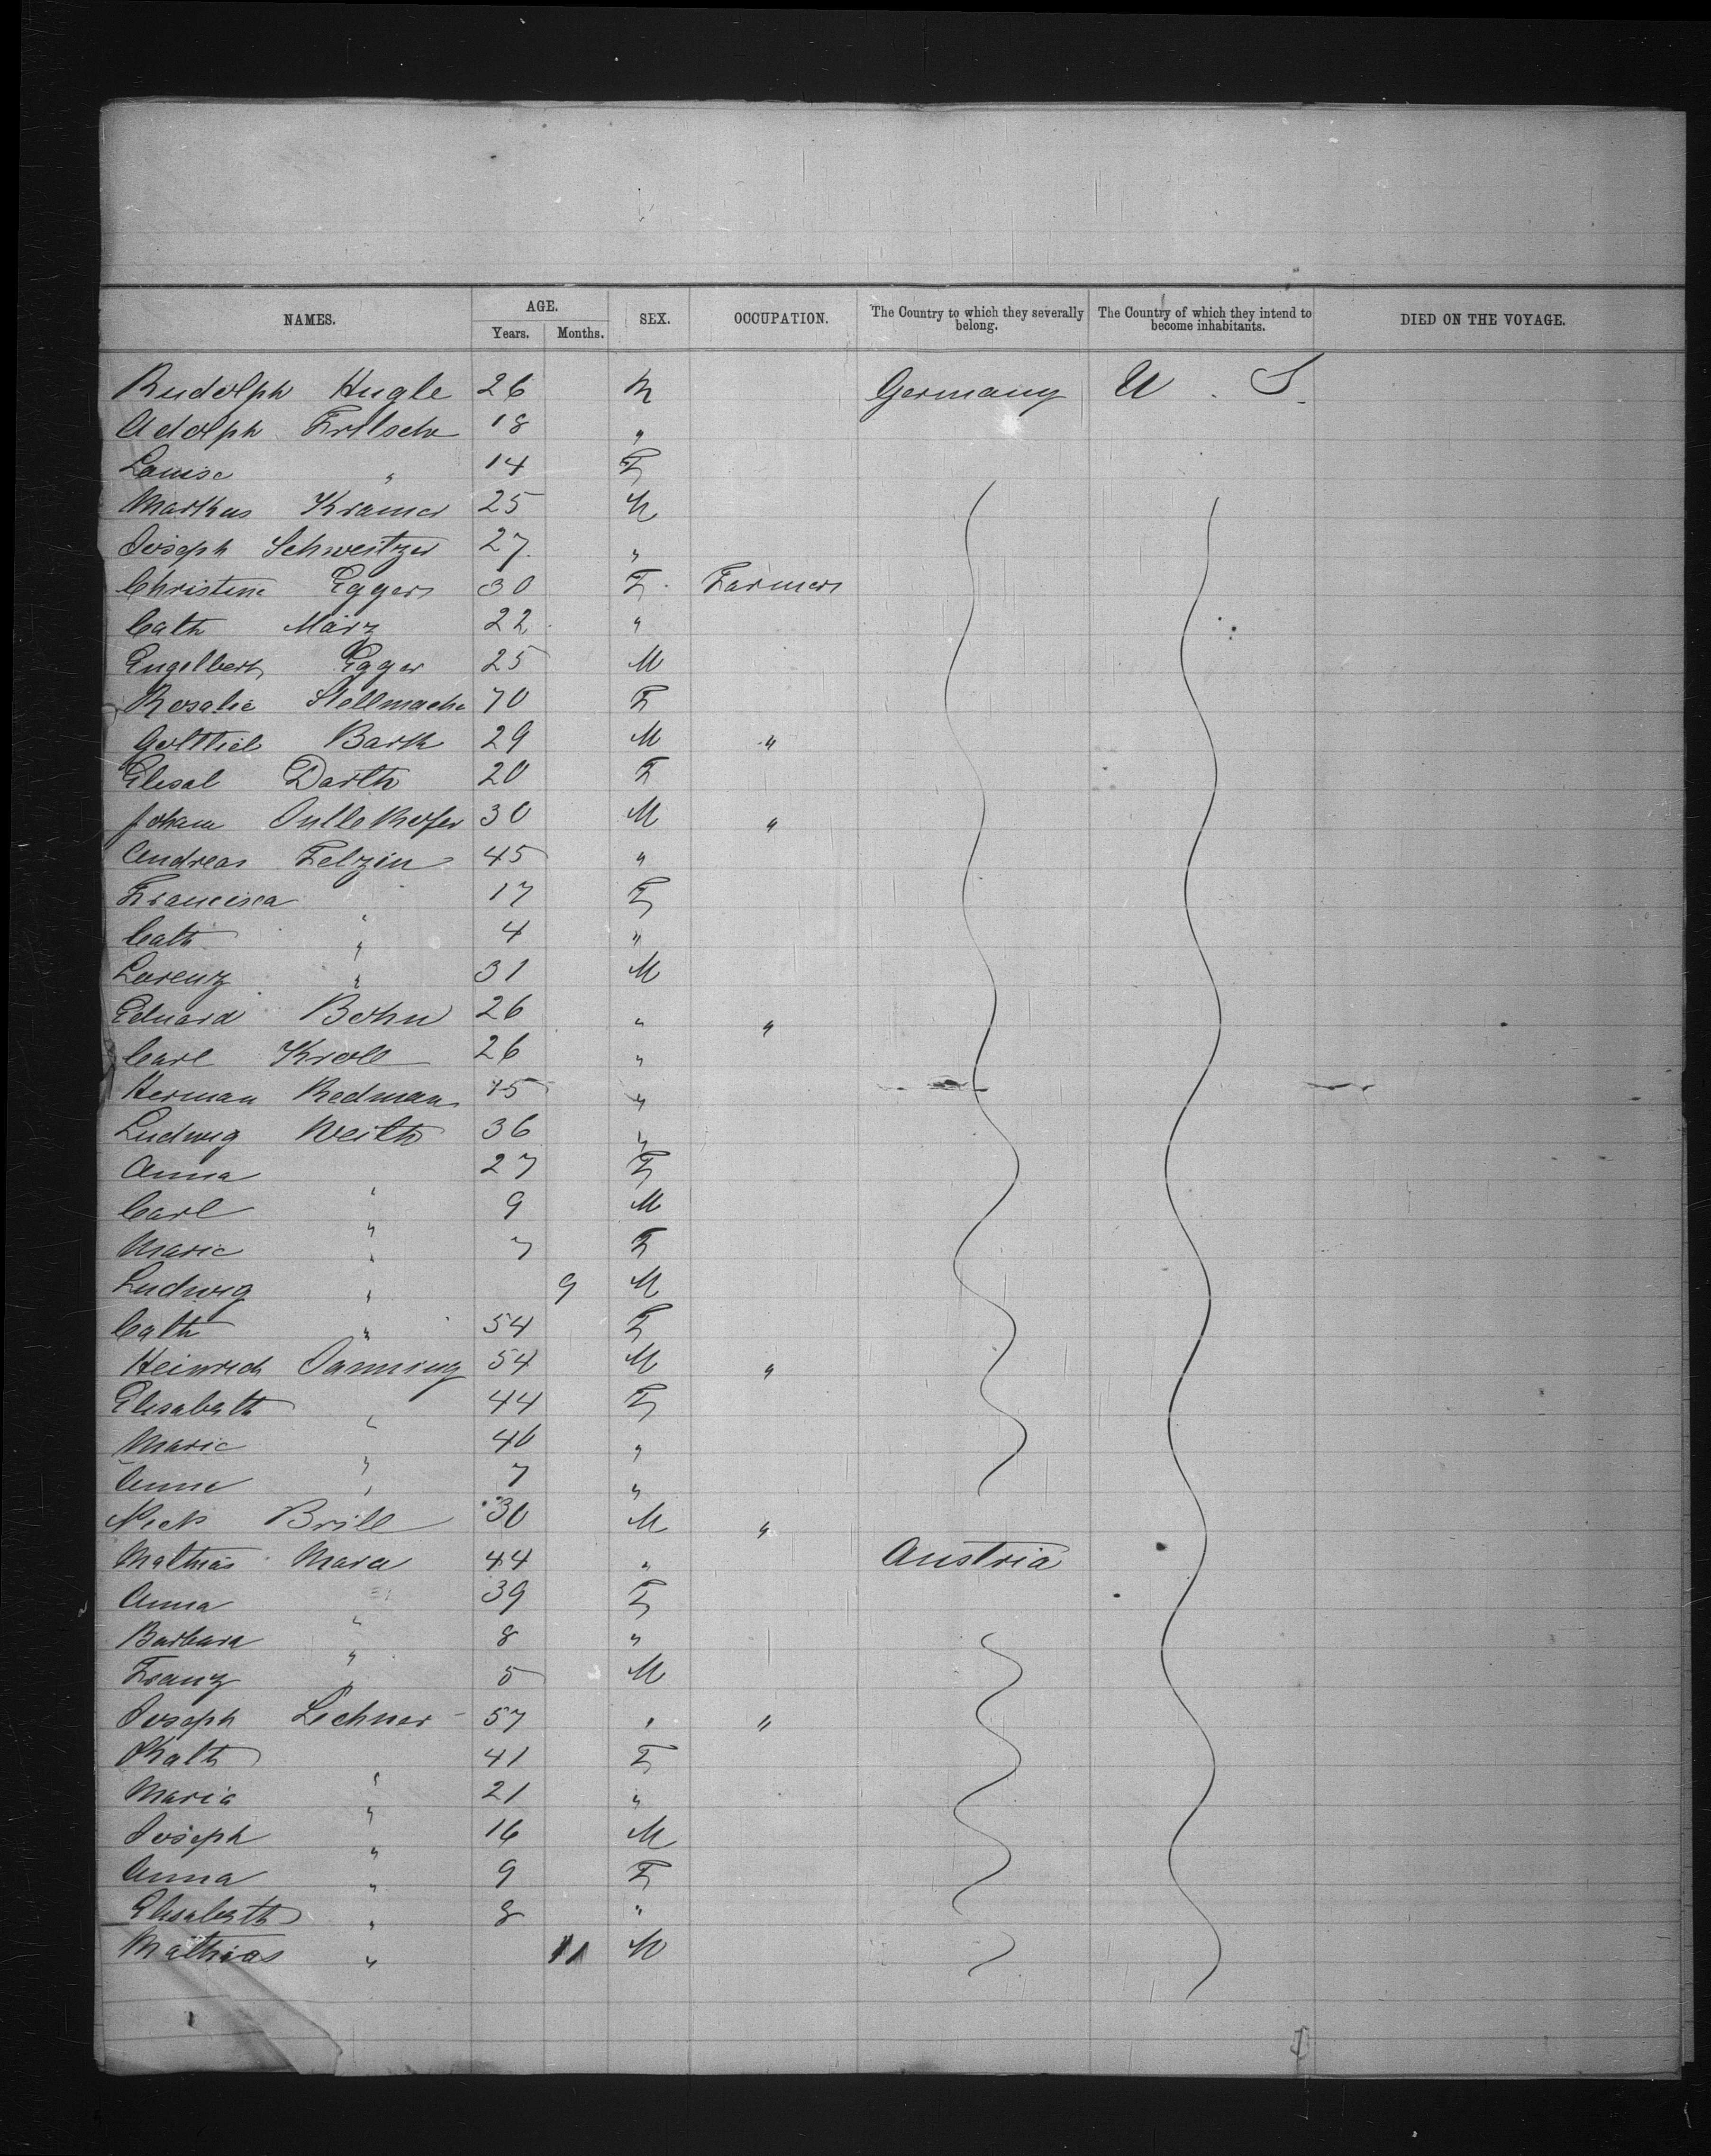 NAMES. AGE. SEX. OCCUPATION. The Country to which they severally belong. The Country of which they intend to become inhabitants. DIED ON THE VOYAGE.
Years. Months.
Rudolph Hugle 26 M Germany U. S.
Adolph 18 "
Louise " 14 F
Markus Kramer 25 M
Joseph Schweitzer 27 "
Christine Eggers 30 F Farmers
Cath März 22 "
Engelbert Egger 25 M
Rosalie Stellmache 70 F
Gottlieb Barth 29 M "
Elisab Darth 20 F
Johann 30 M "
Andreas Felzin 45 "
Francisca " 17 F
Cath " 4 "
Lorenz " 31 M
Eduard Bohn 26 " "
Carl Kroll 26 "
Herman Redman "
Ludwig Weith 36 "
Anna " 27 F
Carl " 9 M
Marie " 7 F
Ludwig " 9 M
Cath " 54 F
Heinrich 54 M "
Elisabeth " 44 F
Marie " "
Anne " 7 "
Nick Brill 30 M "
Mathias Mara 44 " Austria
Anna " 39 F
Barbara " 8 "
Franz " 5 M
Joseph Lechner 57 " "
Kath " 41 F
Maria " 21 "
Joseph " 16 M
Anna " 9 F
Elisabeth " 8 "
Mathias " 11 M